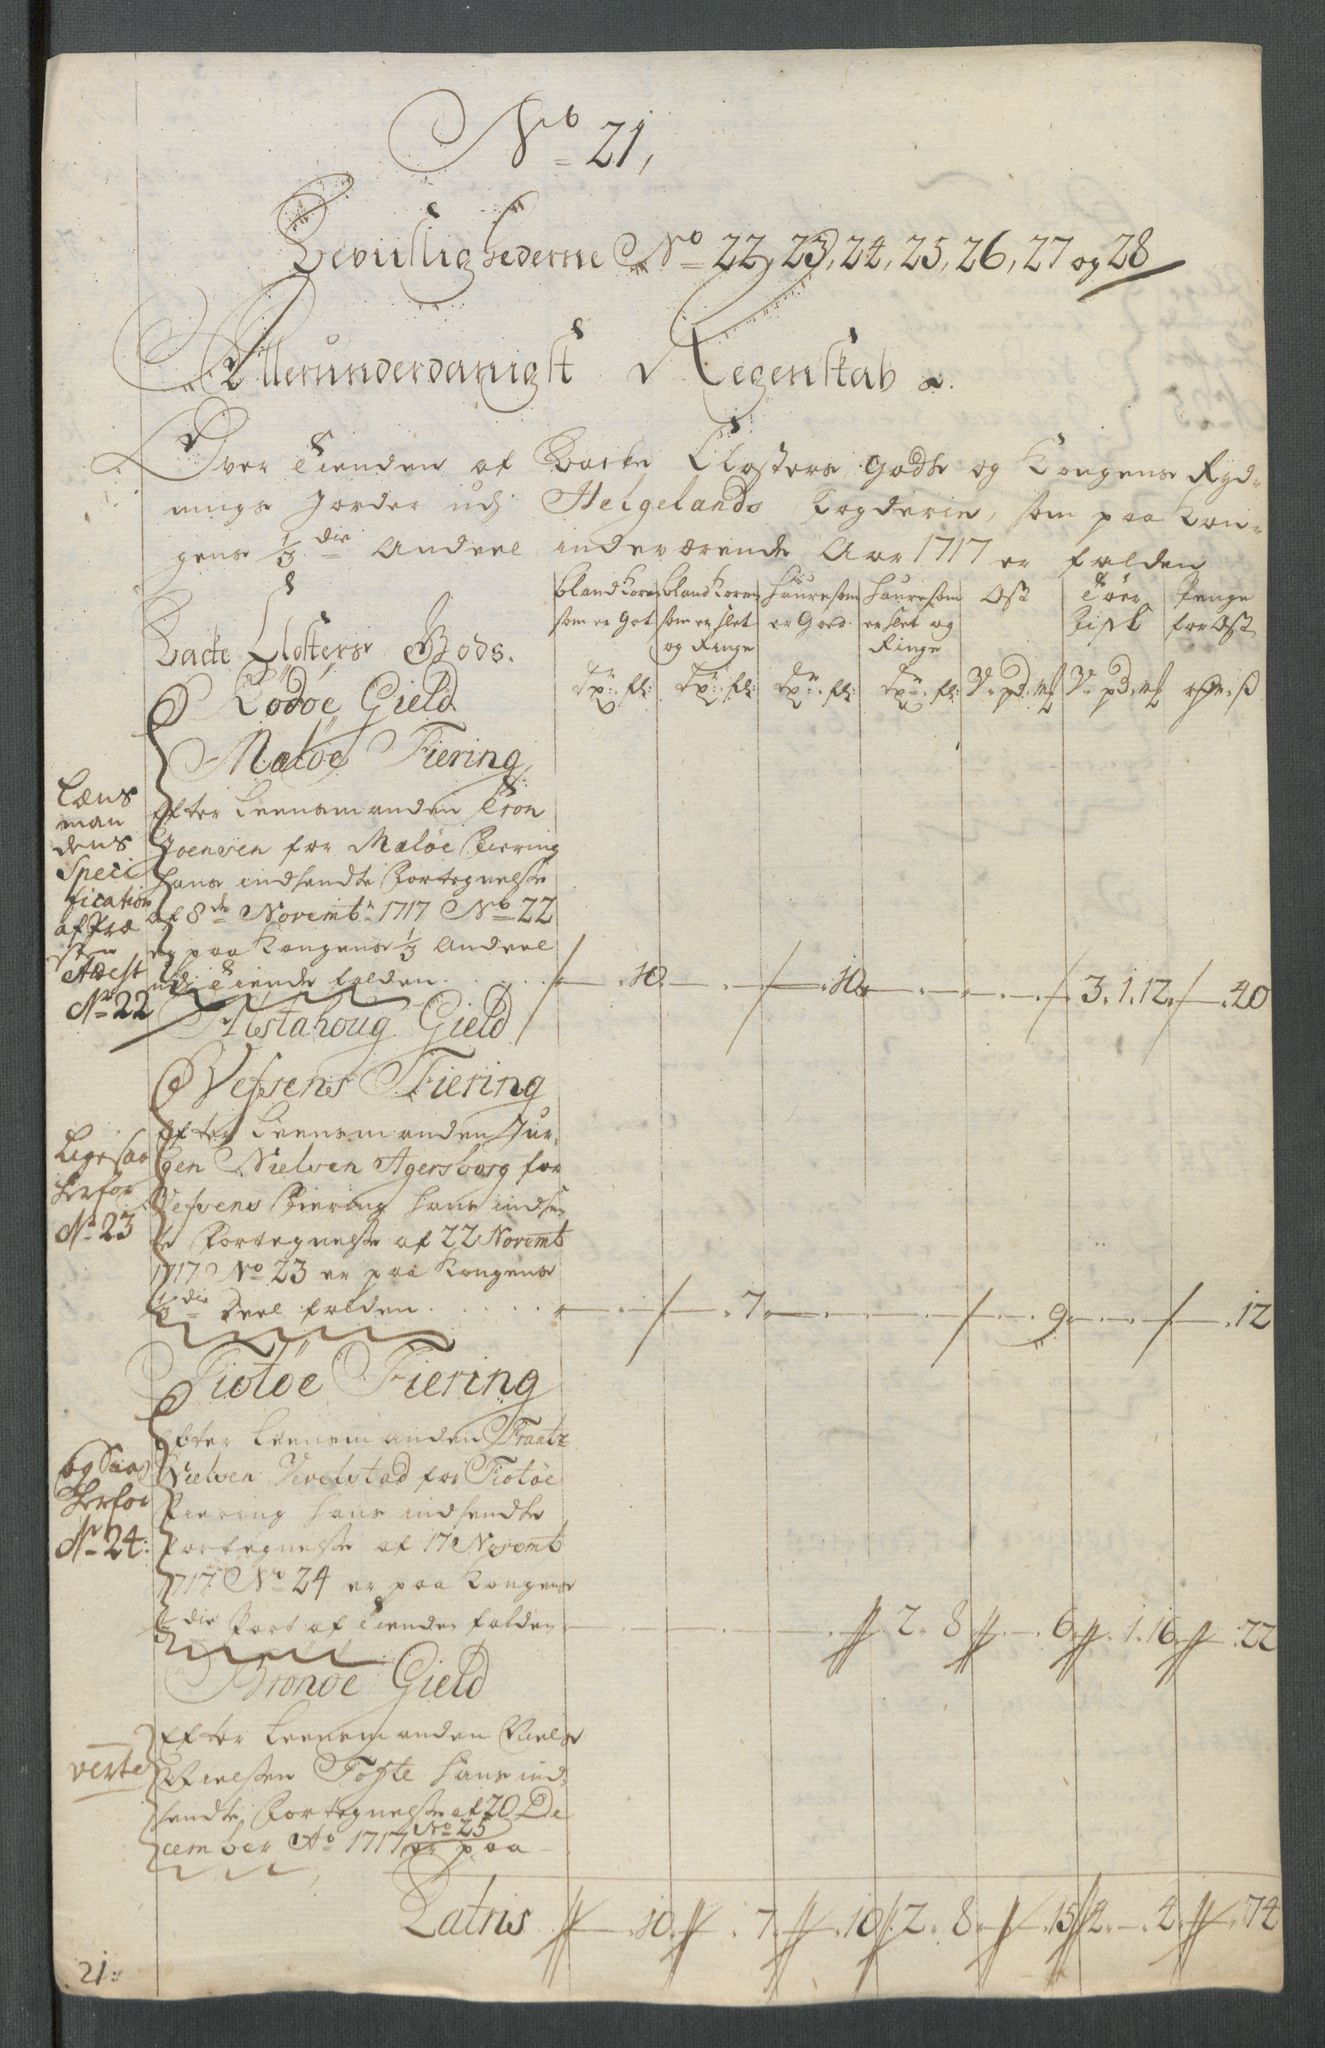 No 21,
Beviisligheederne No 22, 23, 24, 25, 26, 27 og 28
Allerunderdanigst Regenskab
Over Tienden af Backe Closters Gods og Kongens Ryd-
nings Jorder udj Helgelands Fogderie, som paa Kon-
gens 1/3 die Andeel indeværende Aar 1717 er falden
Backe Closters Gods.
blandKorn som er Got
blandKorn som er slet og Ringe
Haure som er Goed
Haure som er slet og Ringe
Ost
Tøer Fisk
Penge for Ost
Rødøe Gield
Meløe Fiering
Efter Leensmanden Tron
Joensen for Meløe Fiering
hans indsendte Fortegnelse
af 8de Novembr 1717 No 22
er paa Kongens 1/3 Andeel
udj Tiende falden 10 10 3. 1. 12 40
Læns
man
dens
Speci
fication
af Præ
sten
Attest
No 22
Alstahoug Gield
Vefsens Fiering
Efter Leensmanden Jur-
gen Nielsen Agersborg for
Vefsens Fiering hans indsen-
te Fortegnelse af 22 Novemb
1717 No 23 er paa Kongens
1/3 die Deel falden 7 9 12
Ligesaa
herfor
No 23
Tiotøe Fiering
Efter Leensmanden Frantz
Nielsen Vevelstad for Tiotøe
Fiering hans indsendte
Fortegnelse af 17 Novemb
1717 No 24 er paa Kongens
1/3 die Part af Tienden falden 2. 8 6 1. 16 22
og Saa
herfor
No 24:
Brønøe Gield
Efter Leensmanden Niels
Nielsen Tofte hans ind-
sendte Fortegnelse af 20 De
cember Ao 1717 No 25 er paa
verte
Latris 10 7 10 2. 8 15 4 4 74
21.